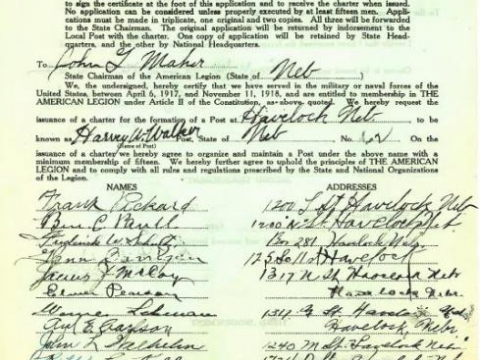 to sign the certificate at the foot of this application and to receive the charter when issued.
No application can be considered unless properly executed by at least fifteen men. Appli-
cations must be made in triplicate, one original and two copies. All three will be forwarded
to the State Chairman. The original application will be returned by indorsement to the
Local Post with the charter. One copy of application will be retained by State Head-
quarters, and the other by National Headquarters.
To John G Maher
State Chairman of the American Legion (State of Neb )
We, the undersigned, hereby certify that we have served in the military or naval forces of the
United States, between April 6, 1917, and November 11, 1918, and are entitled to membership in THE
AMERICAN LEGION under Article II of the Constitution, as above quoted. We hereby request the
issuance of a charter for the formation of a Post at Havelock Neb to be
known as Harvey W. Walker Post, State of Neb No. On the
(Name of Post)
issuance of a charter we hereby agree to organize and maintain a Post under the above name with a
minimum membership of fifteen. We hereby further agree to uphold the principles of THE AMERICAN
LEGION and to comply with all rules and regulations prescribed by the State and National Organizations
of the Legion.
NAMES ADDRESSES
Frank 1200 L St Havelock Neb
Ben C St. Havelock Neb
Frederick W. Box 281 Havelock Neb.
Havelock
James McCoy 1317 N St Havelock Neb
Elmer Pearson Havelock Nebr.
Lehman 1314 G St
Carl E Carlson Havelock, Nebr
John L 1240 M St. Havelock Neb